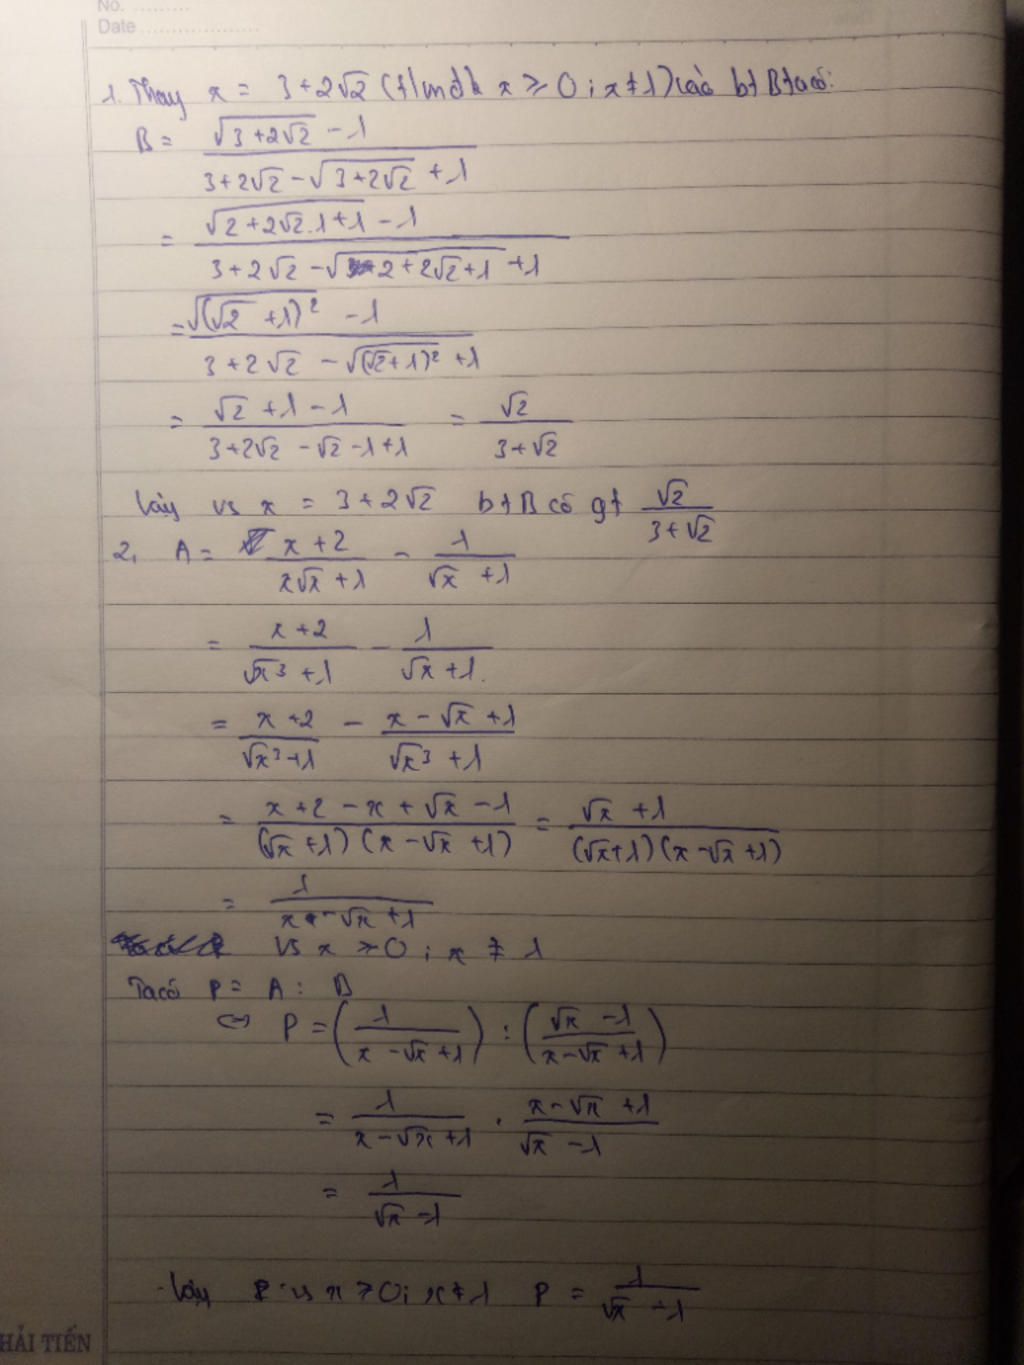 No. ..........
Date ....................
1. Thay x = 3+2√2 (t/m đk x ≥ 0 ; x ≠ 1) vào bt B ta có:
B = (√(3+2√2) - 1) / (3+2√2 - √(3+2√2) + 1)
= (√(2+2√2.1+1) - 1) / (3+2√2 - √(2+2√2+1) + 1)
= (√((√2+1)²) - 1) / (3+2√2 - √((√2+1)²) + 1)
= (√2+1-1) / (3+2√2-√2-1+1) = √2 / (3+√2)
Vậy vs x = 3+2√2 bt B có gt √2 / (3+√2)
2, A = (x+2) / (x√x+1) - 1 / (√x+1)
= (x+2) / (√x³+1) - 1 / (√x+1)
= (x+2) / (√x³+1) - (x-√x+1) / (√x³+1)
= (x+2-x+√x-1) / ((√x+1)(x-√x+1)) = (√x+1) / ((√x+1)(x-√x+1))
= 1 / (x-√x+1)
vs x ≥ 0 ; x ≠ 1
Ta có P = A : B
⇔ P = (1 / (x-√x+1)) : ((√x-1) / (x-√x+1))
= 1 / (x-√x+1) . (x-√x+1) / (√x-1)
= 1 / (√x-1)
Vậy vs x ≥ 0; x ≠ 1 P = 1 / (√x-1)
HẢI TIẾN